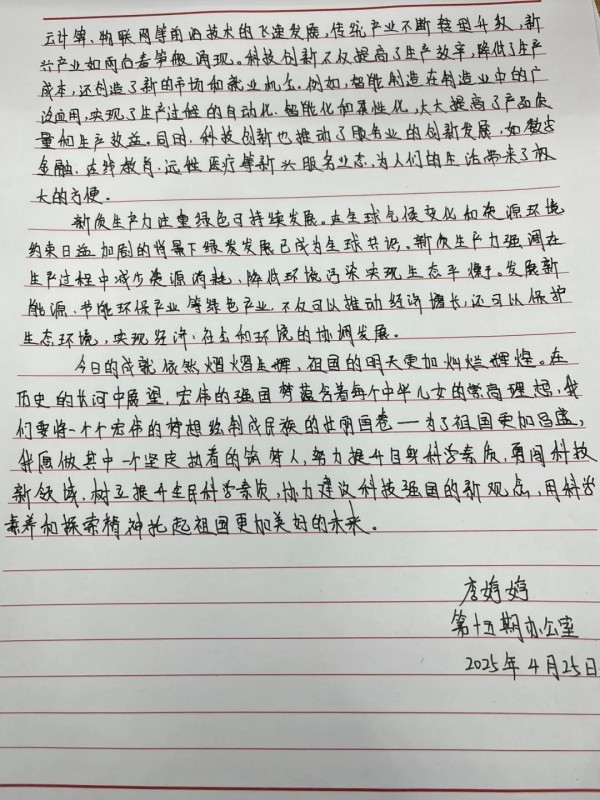 云计算、物联网等前沿技术的飞速发展,传统产业不断转型升级,新
兴产业如雨后春笋般涌现。科技创新不仅提高了生产效率,降低了生产
成本,还创造了新的市场和就业机会。例如,智能制造在制造业中的广
泛应用,实现了生产过程的自动化、智能化和柔性化,大大提高了产品质
量和生产效益。同时,科技创新也推动了服务业的创新发展,如数字
金融、在线教育、远程医疗等新兴服务业态,为人们的生活带来了极
大的方便。
新质生产力注重绿色可持续发展。在全球气候变化和资源环境
约束日益加剧的背景下绿发发展已成为全球共识。新质生产力强调在
生产过程中减少资源消耗、降低环境污染实现生态平衡。发展新
能源、节能环保产业等绿色产业,不仅可以推动经济增长,还可以保护
生态环境,实现经济、社会和环境的协调发展。
今日的成就依然熠熠生辉,祖国的明天更加灿烂辉煌。在
历史的长河中展望,宏伟的强国梦蕴含着每个中华儿女的崇高理想,我
们要将一个个宏伟的梦想绘制成民族的壮丽画卷——为了祖国更加昌盛,
我愿做其中一个坚定执着的筑梦人,努力提升自身科学素质,勇闯科技
新领域,树立提升全民科学素质,协力建设科技强国的新观点,用科学
素养和探索精神托起祖国更加美好的未来。
李婷婷
第十五期办公室
2025年4月25日